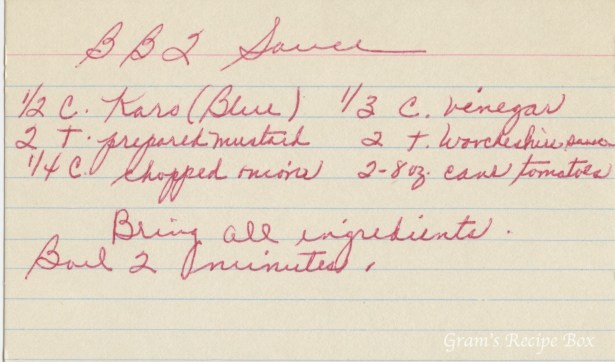 BBQ Sauce
1/2 C. Karo (Blue) 1/3 C. vinegar
2 T. prepared mustard 2 T. Worcheshire sauce
1/4 C. chopped onions 2-8 oz. cans tomatoes
Bring all ingredients.
Boil 2 minutes.
Gram's Recipe Box